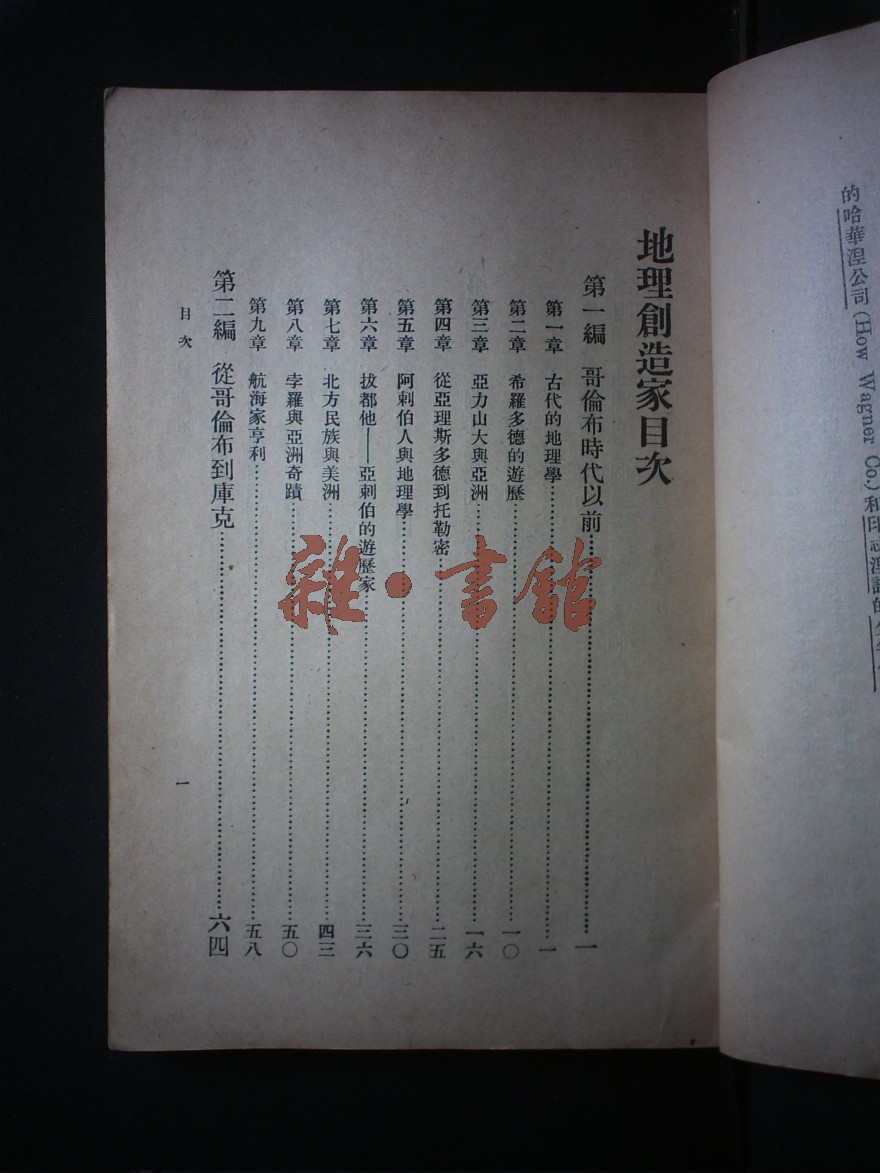 的哈華涅公司(How Wagner Co.)和印
地理創造家目次
第一編 哥倫布時代以前……一
第一章 古代的地理學……一
第二章 希羅多德的遊歷……一〇
第三章 亞力山大與亞洲……一六
第四章 從亞理斯多德到托勒密……二五
第五章 阿剌伯人與地理學……三〇
第六章 拔都他——亞剌伯的遊歷家……三六
第七章 北方民族與美洲……四三
第八章 孛羅與亞洲奇蹟……五〇
第九章 航海家亨利……五八
第二編 從哥倫布到庫克……六四
目次
一
雜·書館